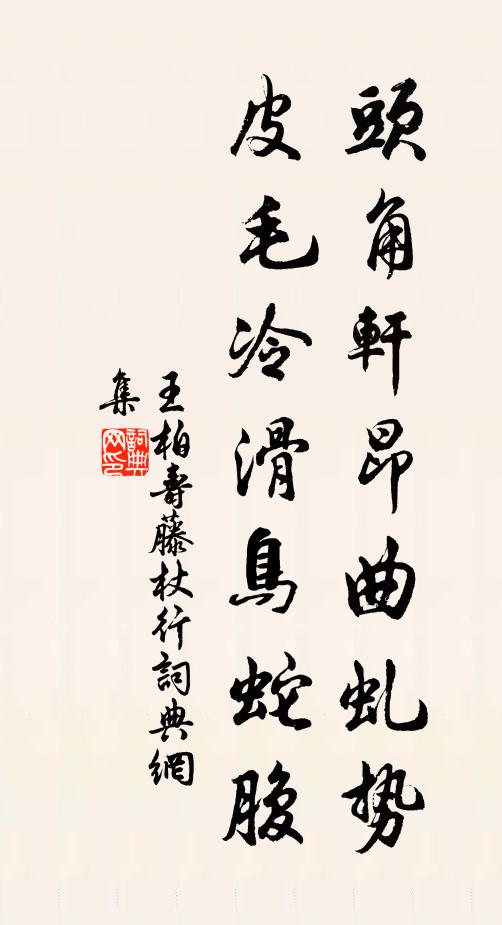 頭角軒昂曲虬勢
皮毛冷滑鳥蛇腹
王柏壽藤杖行詞典網
集
詞典网印